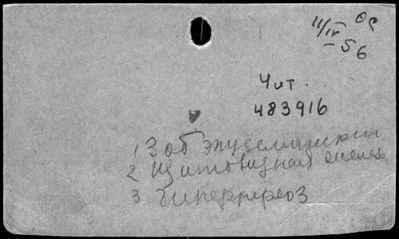 11/IV - 56
Чит.
483916
1 Зоб
2 щитовидная железа
3 Гипертиреоз